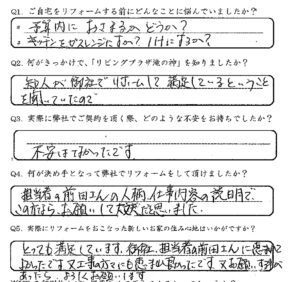 Q1. ご自宅をリフォームする前にどんなことに悩んでいましたか？
・予算内におさまるかどうか？
・キッチンをガスレンジにするか？IHにするか？
Q2. 何がきっかけで、「リビングプラザ滝の神」を知りましたか？
知人が御社でリホームして満足しているということ
を聞いていたので
Q3. 実際に弊社でご契約を頂く際、どのような不安をお持ちでしたか？
不安はなかったです
Q4. 何が決め手となって弊社でリフォームをして頂けましたか？
担当者の前田さんの人柄、仕事内容の説明で
この方なら、お願いして大丈夫だと思いました。
Q5. 実際にリフォームをおこなった新しいお家の住み心地はいかがですか？
とっても満足しています。担当者の前田さんに
よかったです 又工事の方々にも 良かったです 又お願い
あったら、よろしくお願いします